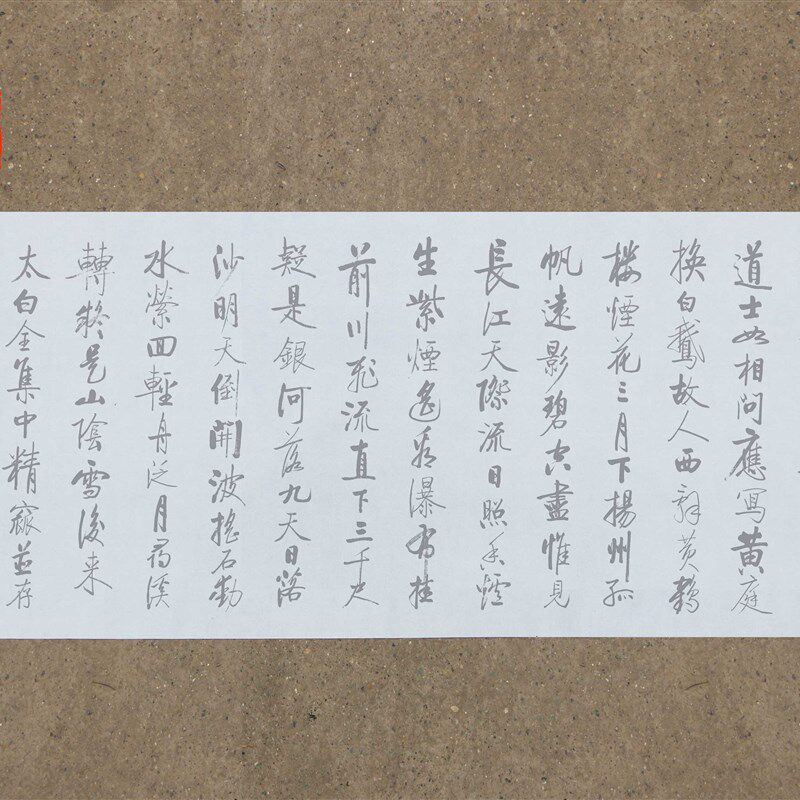 道士如相問應寫黄庭
換白鵝故人西辭黄鶴
樓煙花三月下揚州孤
帆遠影碧空盡惟見
長江天際流日照香爐
生紫煙遙看瀑布挂
前川飛流直下三千尺
疑是銀河落九天日落
沙明天倒開波搖石動
水縈回輕舟泛月尋溪
轉疑是山陰雪後来
太白全集中精並存